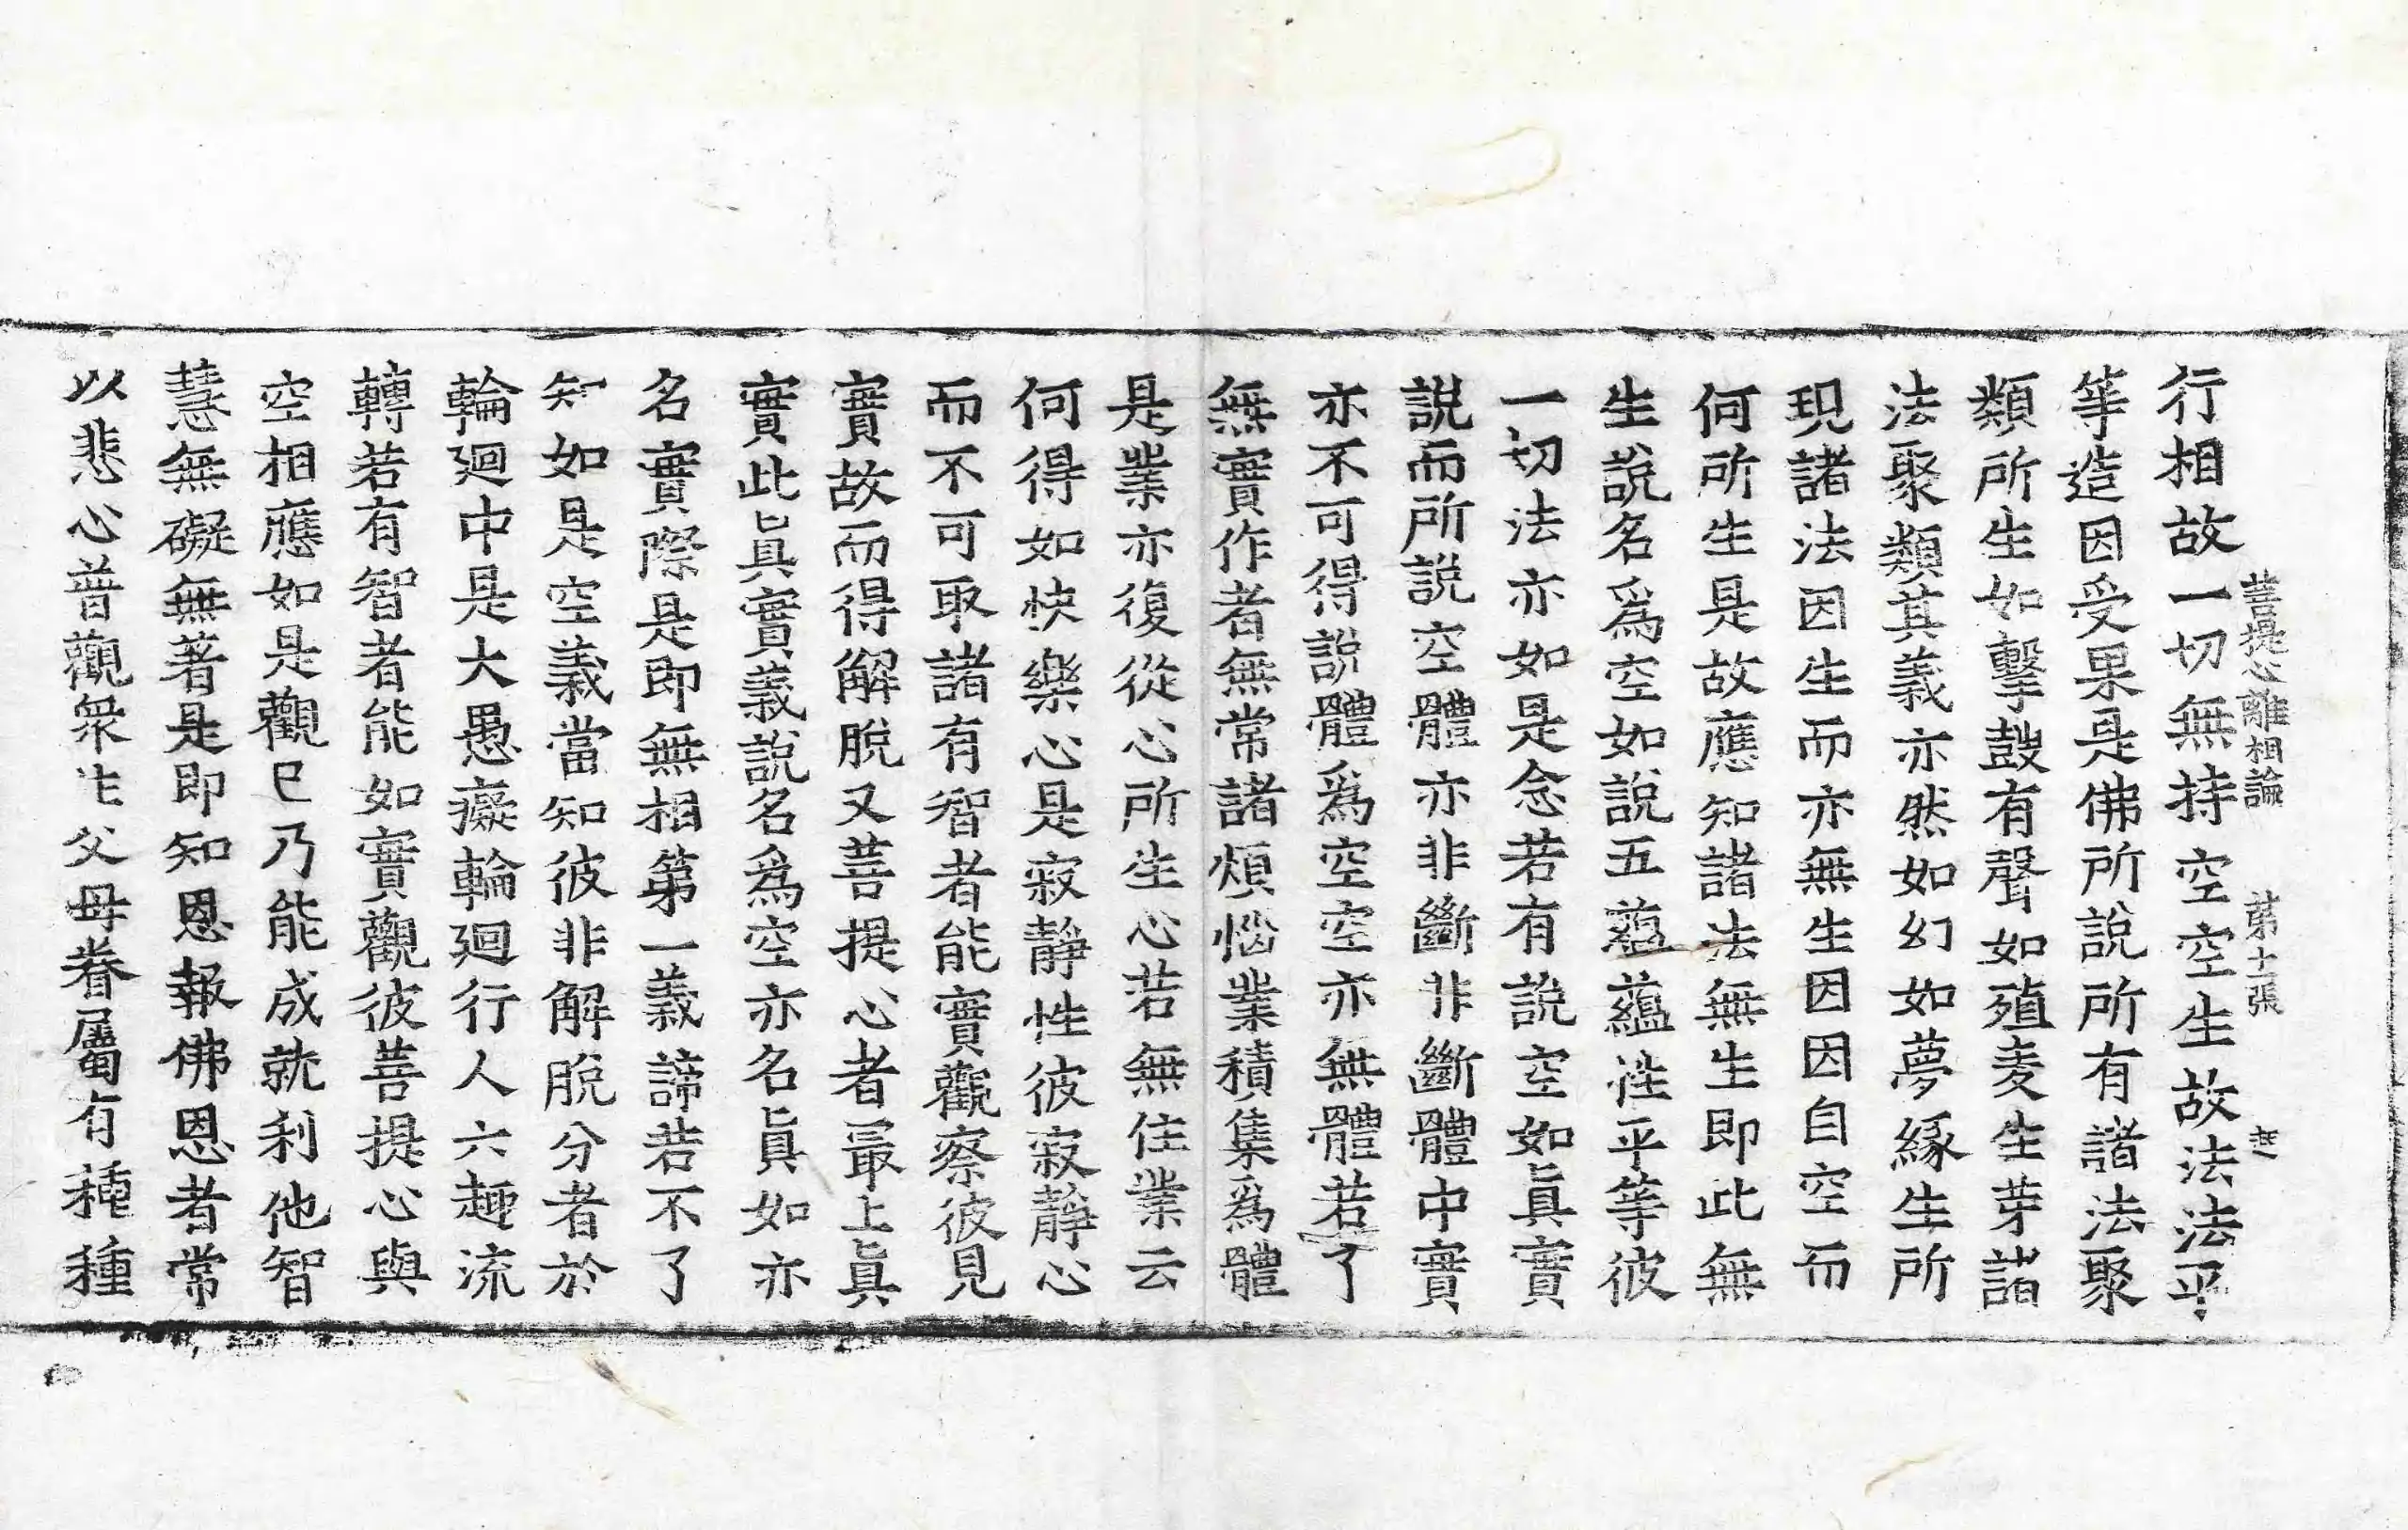 菩提心離相論 第十張
行相故一切無持空空生故法法平
等造因受果是佛所說所有諸法聚
類所生如擊鼓有聲如殖麦生芽諸
法聚類其義亦然如幻如夢緣生所
現諸法因生而亦無生因因自空而
何所生是故應知諸法無生即此無
生說名爲空如說五蘊蘊性平等彼
一切法亦如是念若有說空如眞實
說而所說空體亦非斷非斷體中實
亦不可得說體爲空空亦無體若了
無實作者無常諸煩惱業積集爲體
是業亦復從心所生心若無住業云
何得如快樂心是寂靜性彼寂靜心
而不可取諸有智者能實觀察彼見
實故而得解脫又菩提心者最上眞
實此眞實義說名爲空亦名眞如亦
名實際是即無相第一義諦若不了
知如是空義當知彼非解脫分者於
輪迴中是大愚癡輪迴行人六趣流
轉若有智者能如實觀彼菩提心與
空相應如是觀已乃能成就利他智
慧無礙無著是即知恩報佛恩者常
以悲心普觀衆生父母眷屬有種種